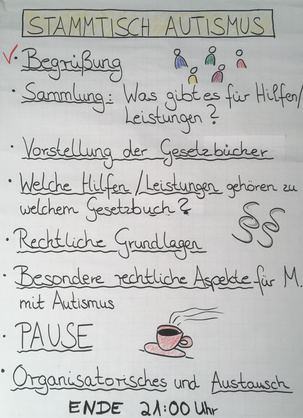 STAMMTISCH AUTISMUS
• Begrüßung
• Sammlung: Was gibt es für Hilfen/
Leistungen?
• Vorstellung der Gesetzbücher
• Welche Hilfen/Leistungen gehören zu
welchem Gesetzbuch?
§§
• Rechtliche Grundlagen
• Besondere rechtliche Aspekte für M.
mit Autismus
• PAUSE
• Organisatorisches und Austausch
ENDE 21:00 Uhr